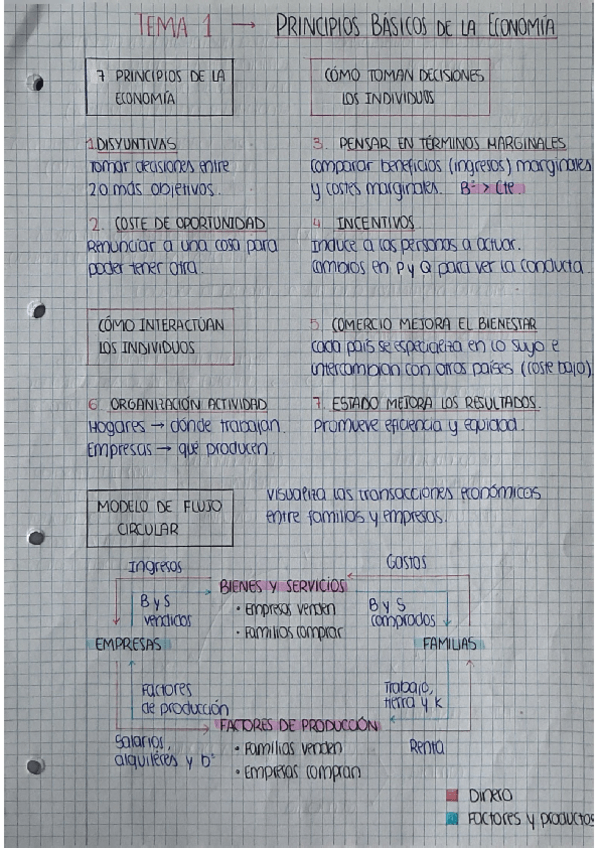 TEMA 1 → PRINCIPIOS BÁSICOS DE LA ECONOMÍA
7 PRINCIPIOS DE LA
ECONOMÍA
CÓMO TOMAN DECISIONES
LOS INDIVIDUOS
1. DISYUNTIVAS
Tomar decisiones entre
2 o más objetivos.
3. PENSAR EN TÉRMINOS MARGINALES
Comparar beneficios (ingresos) marginales
y costes marginales. Bº > Cte
2. COSTE DE OPORTUNIDAD
Renunciar a una cosa para
poder tener otra.
4. INCENTIVOS
Induce a las personas a actuar.
Cambios en P y Q para ver la conducta.
CÓMO INTERACTÚAN
LOS INDIVIDUOS
5. COMERCIO MEJORA EL BIENESTAR
Cada país se especializa en lo suyo e
intercambian con otros países (coste bajo).
6. ORGANIZACIÓN ACTIVIDAD
Hogares → dónde trabajan.
Empresas → qué producen.
7. ESTADO MEJORA LOS RESULTADOS.
Promueve eficiencia y equidad.
MODELO DE FLUJO
CIRCULAR
Visualiza las transacciones económicas
entre familias y empresas.
Ingresos
Gastos
BIENES Y SERVICIOS
B y S
vendidos
• Empresas venden
• Familias compran
B y S
comprados
EMPRESAS
FAMILIAS
Factores
de producción
Trabajo,
tierra y K
FACTORES DE PRODUCCIÓN
Salarios,
alquileres y bº
• Familias venden
• Empresas compran
Renta
Dinero
Factores y productos